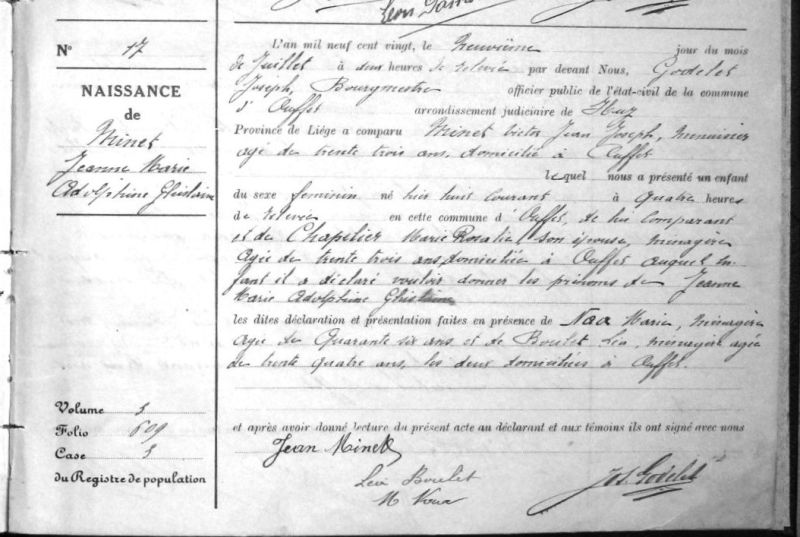 Nº 17
NAISSANCE
de
Minet
Jeanne Marie
Adolphine Ghislaine
L'an mil neuf cent vingt, le Neuvième jour du mois
de Juillet à deux heures de relevée par devant Nous, Godelet
Joseph, Bourgmestre officier public de l'état-civil de la commune
d'Ouffet arrondissement judiciaire de Huy
Province de Liége a comparu Minet Victor Jean Joseph, menuisier
agé de trente trois ans, domicilié à Ouffet
lequel nous a présenté un enfant
du sexe feminin né hier huit courant à quatre heures
de relevée en cette commune d'Ouffet, de lui comparant
et de Chapelier Marie Rosalie, son épouse, ménagère
agée de trente trois ans, domiciliée à Ouffet auquel en-
fant il a déclaré vouloir donner les prénoms de Jeanne
Marie Adolphine Ghislaine
les dites déclaration et présentation faites en présence de Naa Marie, ménagère
agée de Quarante six ans et de Boulet Léa, ménagère agée
de trente quatre ans, les deux domiciliées à Ouffet.
Volume 3
Folio 609
Case 3
du Registre de population
et après avoir donné lecture du présent acte au déclarant et aux témoins ils ont signé avec nous
Jean Minet
Léa Boulet
M
Jos. Godelet